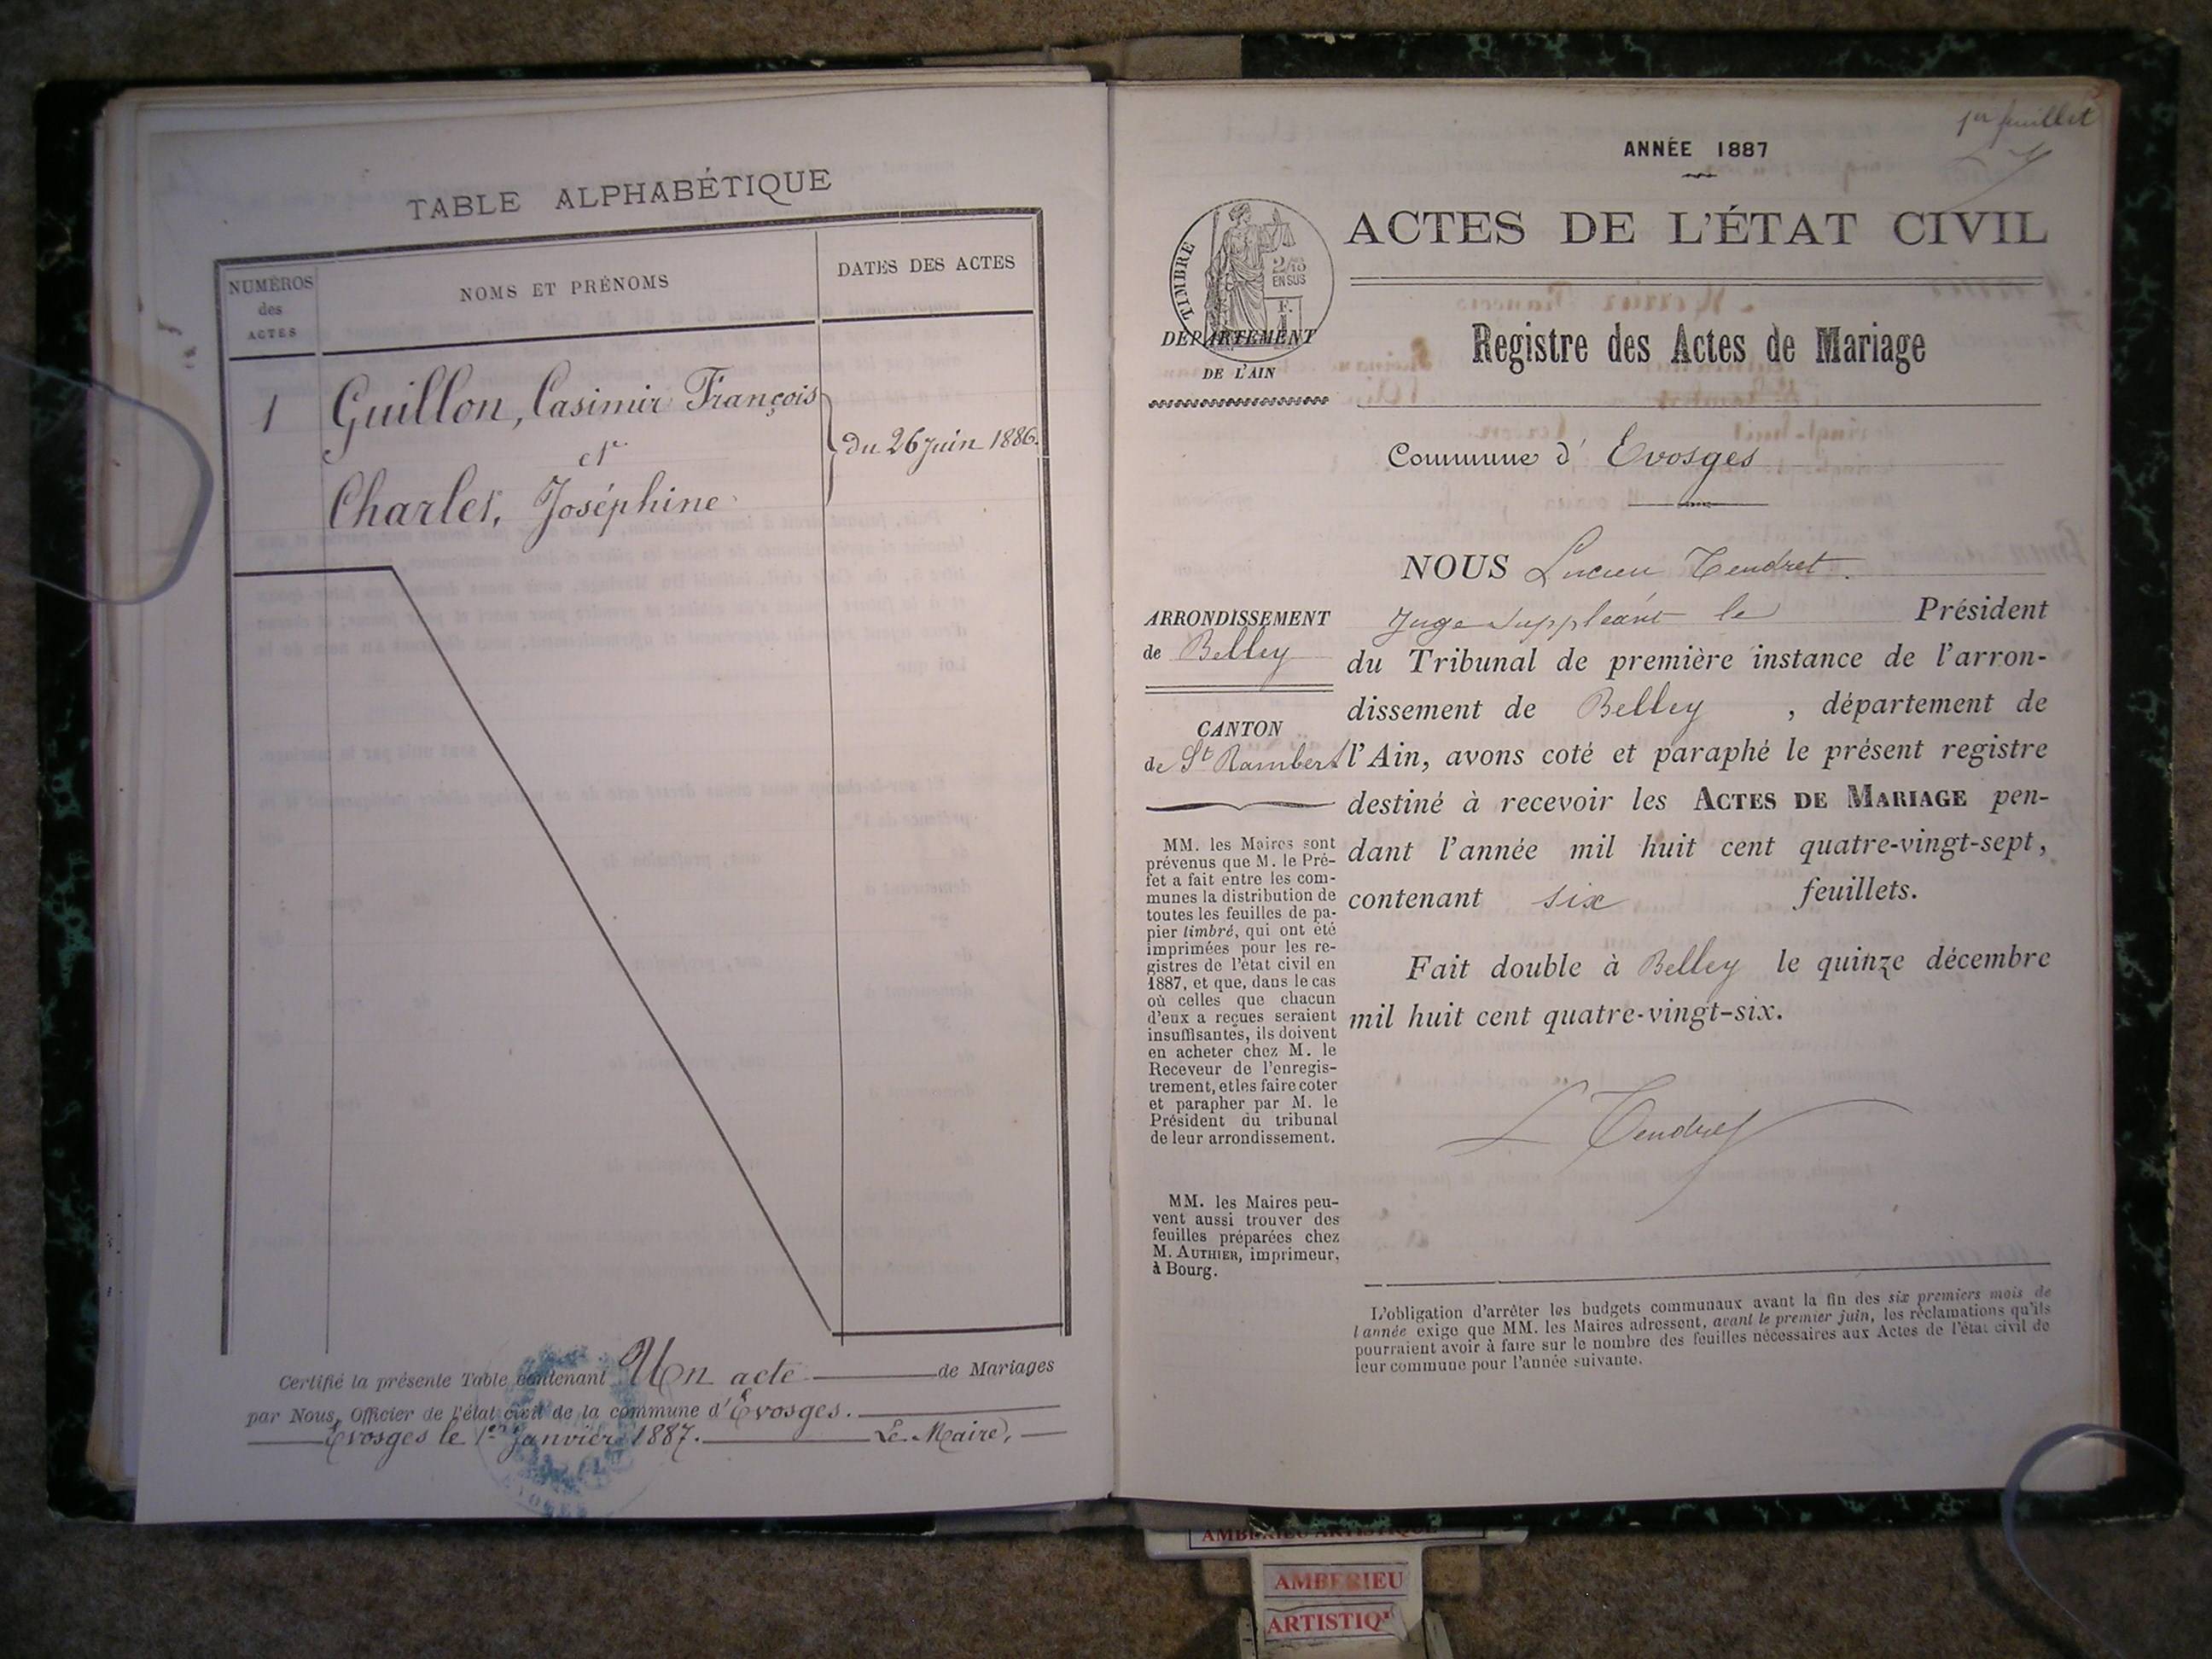 TABLE ALPHABÉTIQUE
NUMÉROS
des
ACTES
NOMS ET PRÉNOMS
DATES DES ACTES
1
Guillon, Casimir François
et
Charles, Joséphine
du 26 Juin 1886.
Certifié la présente Table contenant Un acte de Mariages
par Nous, Officier de l'état civil de la commune d'Evosges.
Evosges le 1er Janvier 1887. Le Maire,
1er feuillet
ANNÉE 1887
ACTES DE L'ÉTAT CIVIL
TIMBRE
2/10
EN SUS
DÉPARTEMENT
DE L'AIN
Registre des Actes de Mariage
Commune d' Evosges
ARRONDISSEMENT
de Belley
CANTON
de St Rambert
MM. les Maires sont
prévenus que M. le Pré-
fet a fait entre les com-
munes la distribution de
toutes les feuilles de pa-
pier timbré, qui ont été
imprimées pour les re-
gistres de l'état civil en
1887, et que, dans le cas
où celles que chacun
d'eux a reçues seraient
insuffisantes, ils doivent
en acheter chez M. le
Receveur de l'enregis-
trement, et les faire coter
et parapher par M. le
Président du tribunal
de leur arrondissement.
MM. les Maires peu-
vent aussi trouver des
feuilles préparées chez
M. AUTHIER, imprimeur,
à Bourg.
NOUS Lucien Tendret
Juge Suppléant le Président
du Tribunal de première instance de l'arron-
dissement de Belley, département de
l'Ain, avons coté et paraphé le présent registre
destiné à recevoir les ACTES DE MARIAGE pen-
dant l'année mil huit cent quatre-vingt-sept,
contenant six feuillets.
Fait double à Belley le quinze décembre
mil huit cent quatre-vingt-six.
L Tendret
L'obligation d'arrêter les budgets communaux avant la fin des six premiers mois de
l'année exige que MM. les Maires adressent, avant le premier juin, les réclamations qu'ils
pourraient avoir à faire sur le nombre des feuilles nécessaires aux Actes de l'état civil de
leur commune pour l'année suivante.
AMBERIEU ARTISTIQUE
AMBERIEU
ARTISTIQ